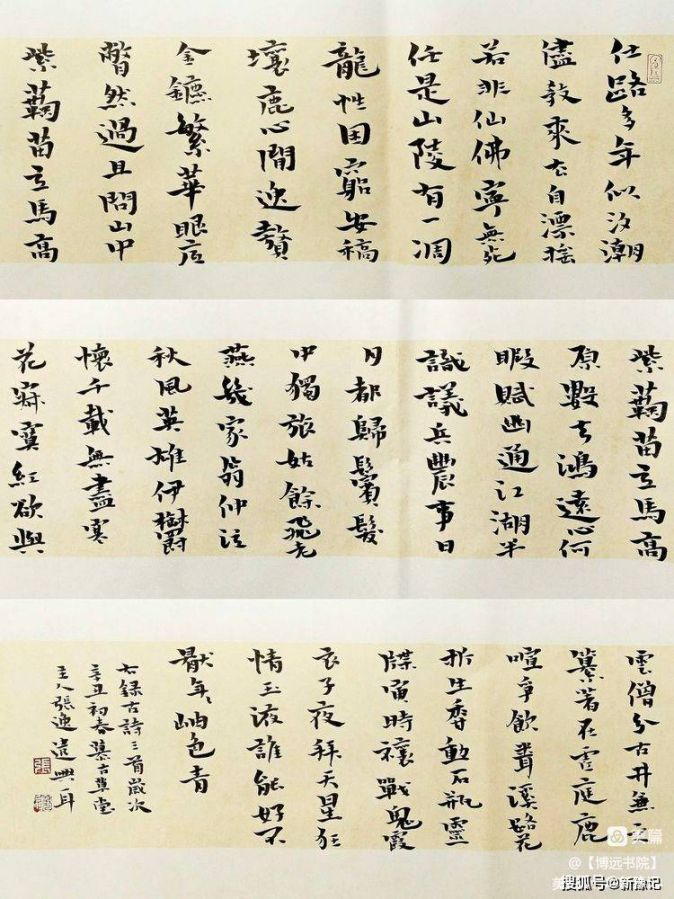 仕路多年似汐潮
儘教來去自漂搖
若非仙佛寧無死
任是山陵有一凋
龍性困窮安稿
壤鹿心閒逸贅
金鑣繁華眼底
瞥然過且問山中
紫蘜苗立馬高
紫蘜苗立馬高
原數去鴻遠心何
暇賦幽通江湖半
識議兵農事日
月都歸鬢髮
中獨旅姑餘飛老
燕幾家翁仲泣
秋風英雄伊鬱
懷千載無盡寒
花寂寞紅欲與
雲僧分古井無三
篆著在虛庭鹿
喧爭飲聾溪路花
折生香動石瓶靈
牒寅時禳戰鬼霞
衣子夜拜天星狂
情玉液誰能好不
厭年年岫色青
右錄古詩三首歲次
辛丑初春慕古草堂
主人張逸遣興耳
美篇
@【博远书院】
搜狐号@新豫记